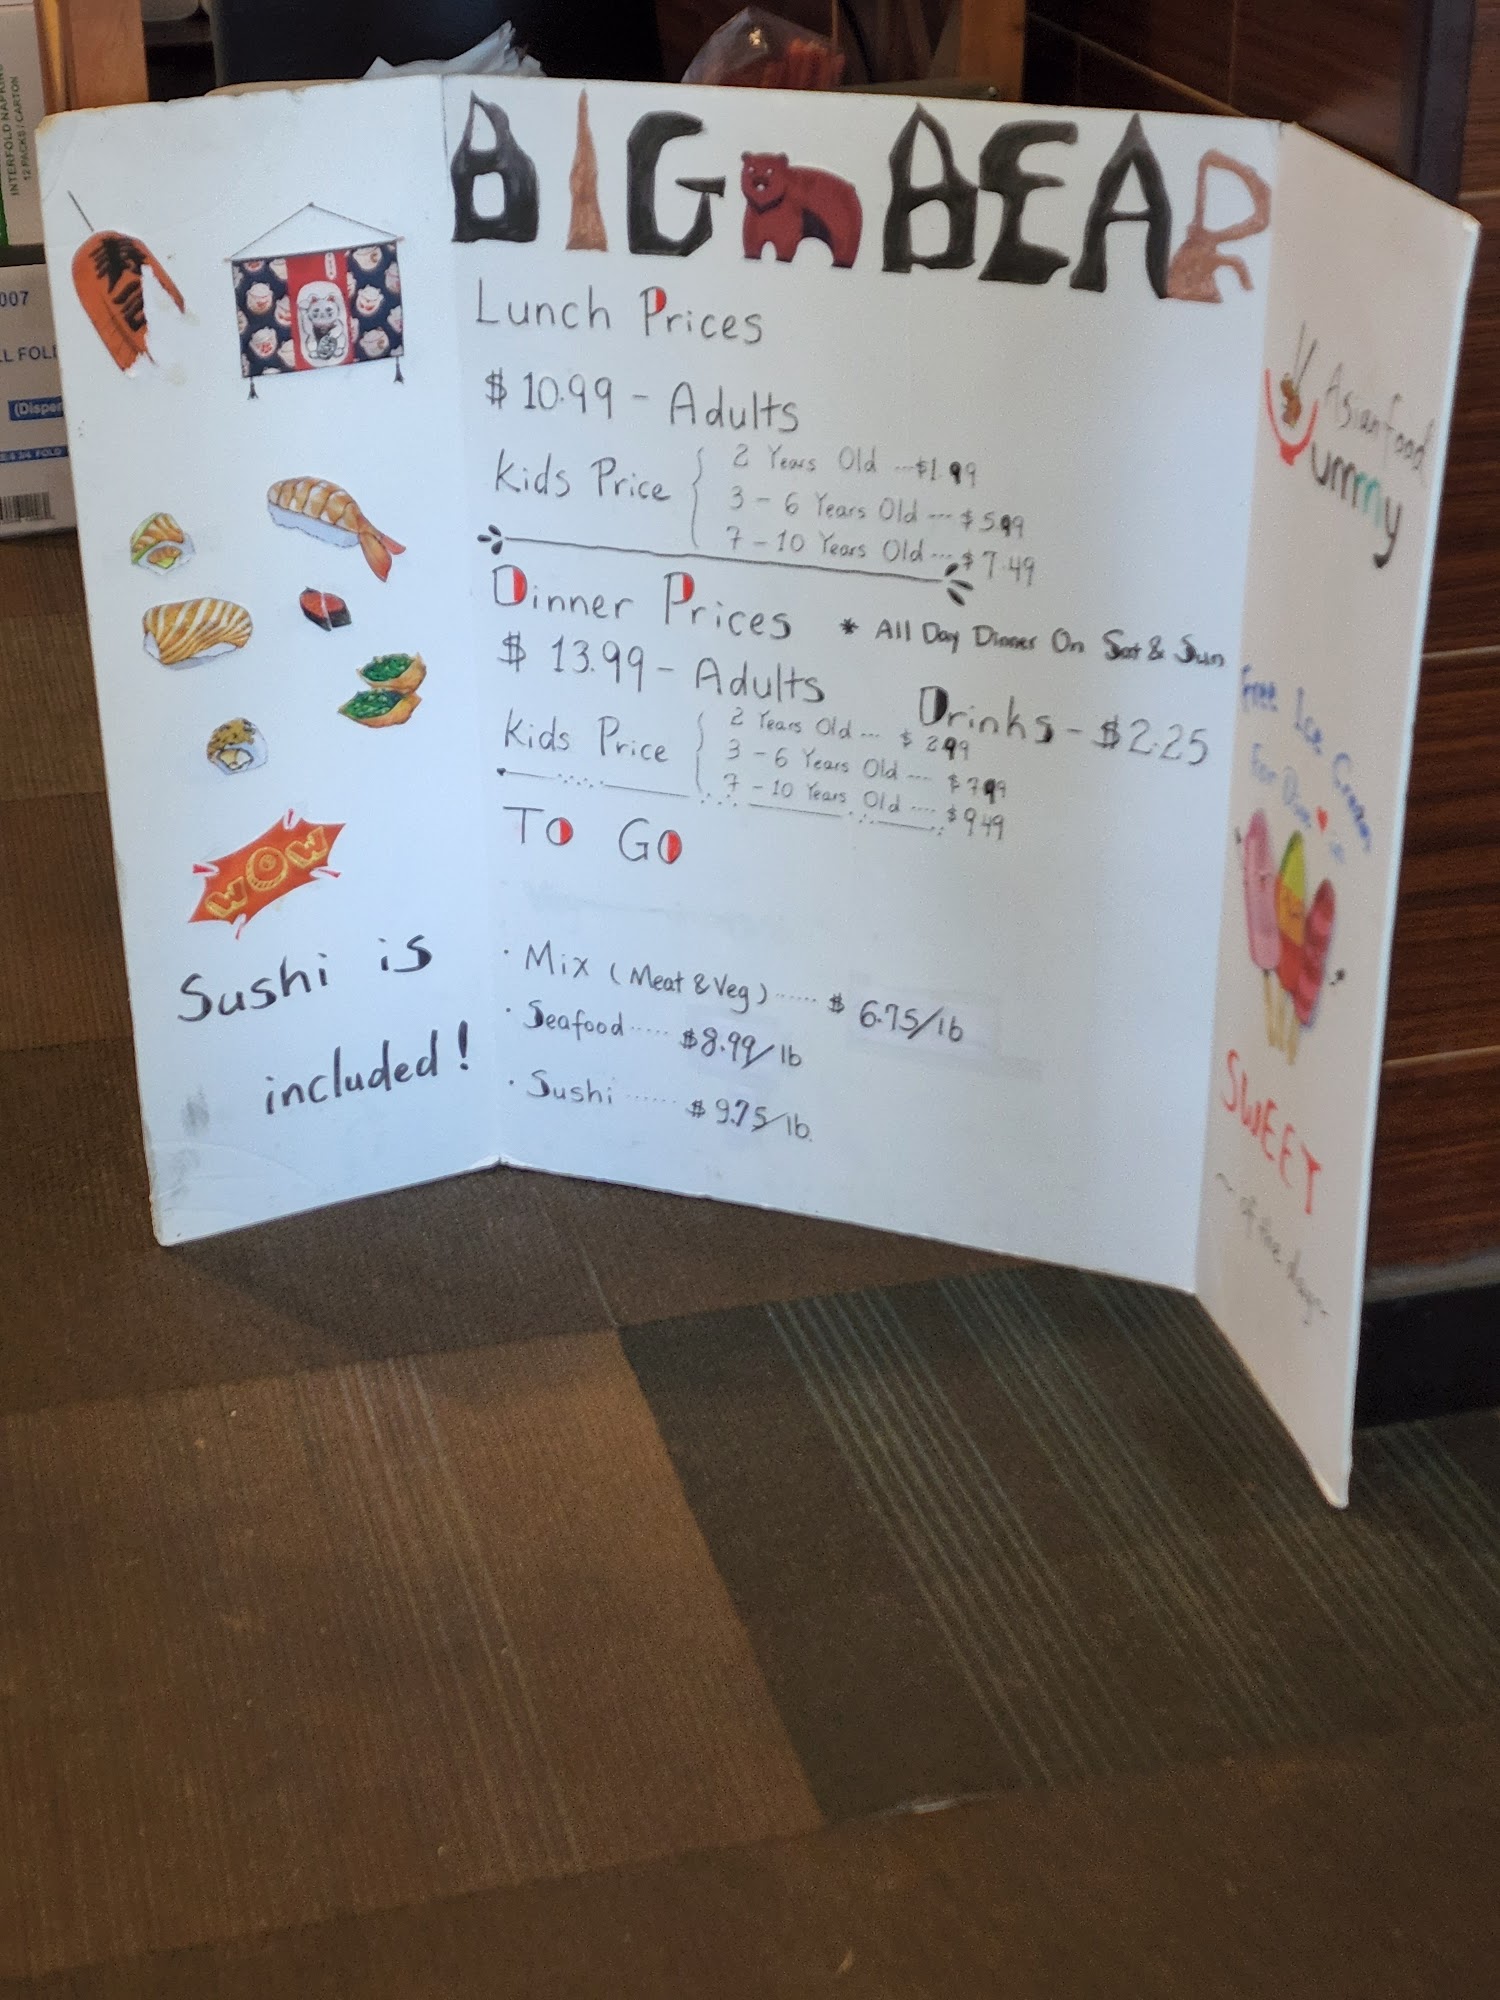 INTERFOLD NAPKIN
12 PACKS / CARTON
007
L FOL
(Disper
WOW
Sushi is
included!
BIG BEAR
Lunch Prices
$ 10.99 - Adults
Kids Price
2 Years Old ---$1.99
3 - 6 Years Old --- $ 5.99
7 - 10 Years Old ---- $ 7.49
Dinner Prices * All Day Dinner On Sat & Sun
$ 13.99 - Adults
Drinks - $2.25
Kids Price
2 Years Old --- $ 2.99
3 - 6 Years Old ---- $ 7.99
7 - 10 Years Old ---- $ 9.49
TO GO
· Mix (Meat & Veg) ...... $ 6.75/lb
· Seafood ..... $8.99/lb
· Sushi ...... $ 9.75/lb.
Asian food
Yummy
Free Ice Cream
For
SWEET
~ of the day ~